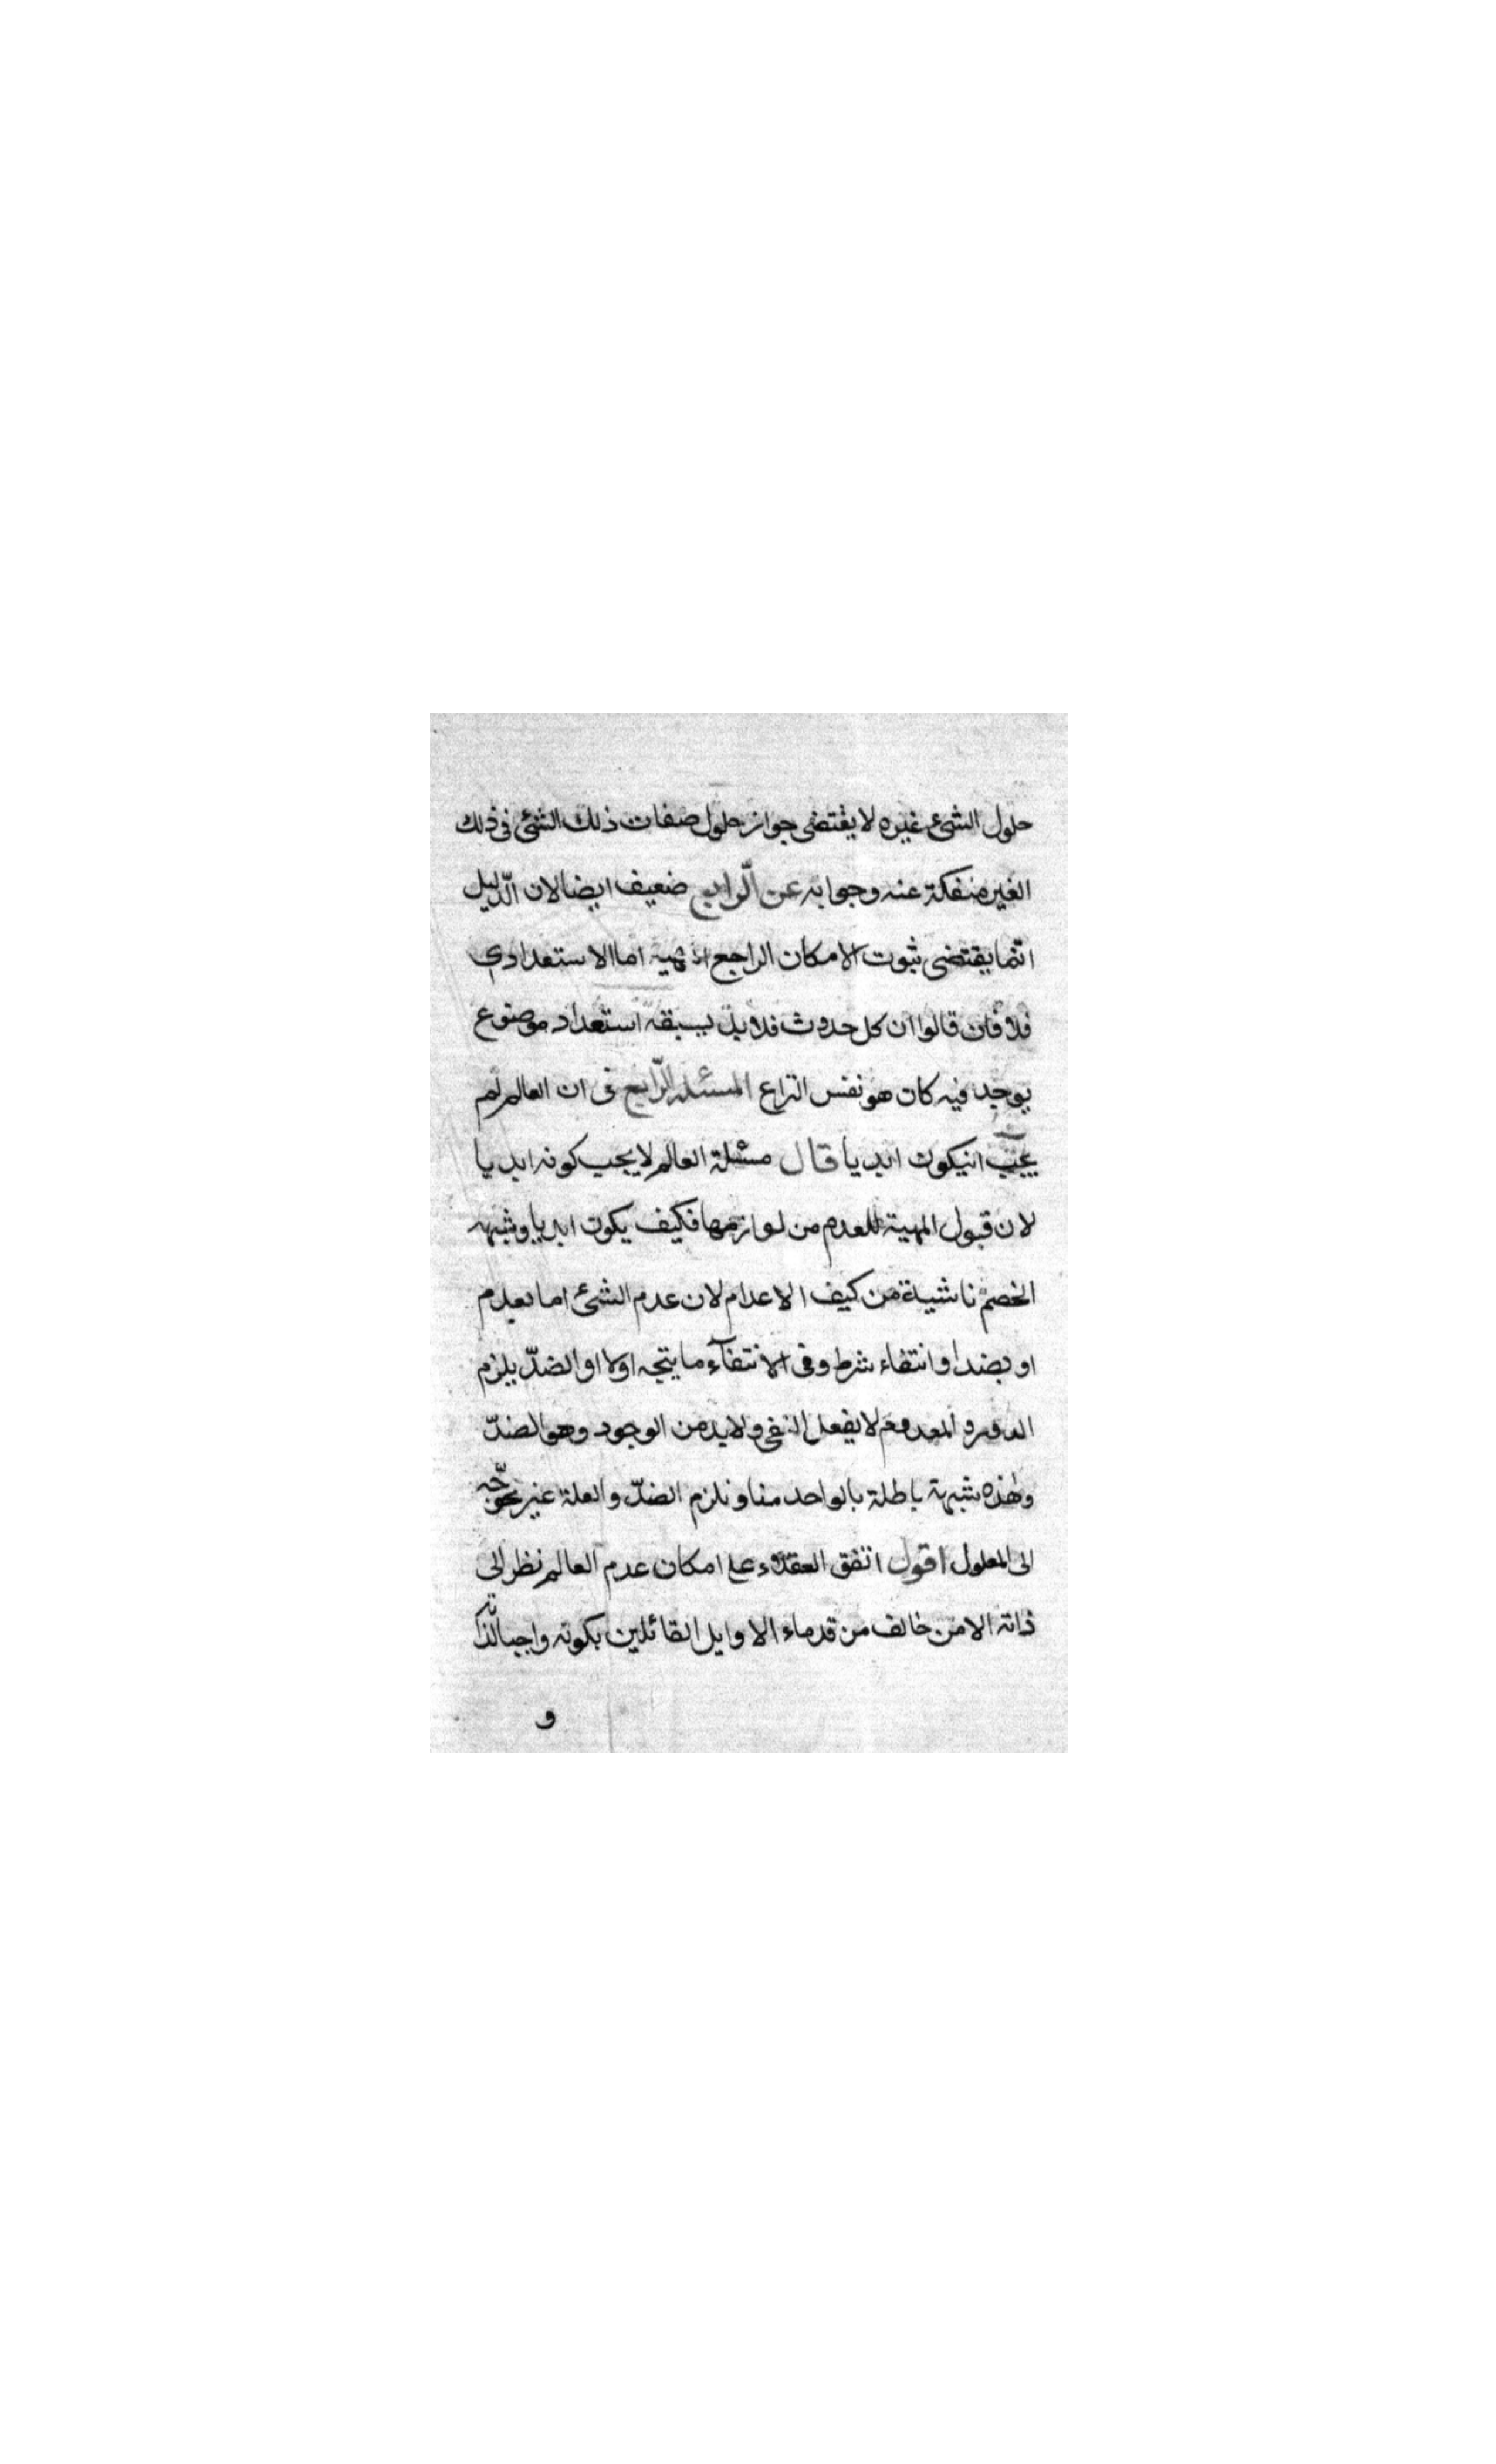 حلول الشئ غيره لا يقتضى جواز حلول صفات ذلك الشئ فى ذلك
الغير منفكة عنه وجوابه عن الرّابع ضعيف ايضا لان الدّليل
انّما يقتضى ثبوت الامكان الراجع الى المهية اما الاستعدادى
فلا فان قالوا ان كل حدوث فلا بدّ يسبقه استعداد موضوع
يوجد فيه كان هو نفس النزاع المسئله الرّابع فى ان العالم لم
يجب انيكون ابديا قال مسئلة العالم لا يجب كونه ابديا
لان قبول المهية للعدم من لوازمها فكيف يكون ابديا وشبهه
الخصم ناشية من كيف الاعدام لان عدم الشئ اما بعدم
او بضد او انتفاء شرط وفى الانتفآء ما يتجه اولا او الضدّ يلزم
الدور والمعدوم لا يفعل النفى ولا بد من الوجود وهو الضدّ
وهذه شبهة باطلة بالواحد منا ونلزم الضدّ والعلة غير
الى المعلول اقول اتفق العقلاء على امكان عدم العالم نظر الى
ذاته الا من خالف من قدماء الاوايل القائلين بكونه واجبا لذاته
و